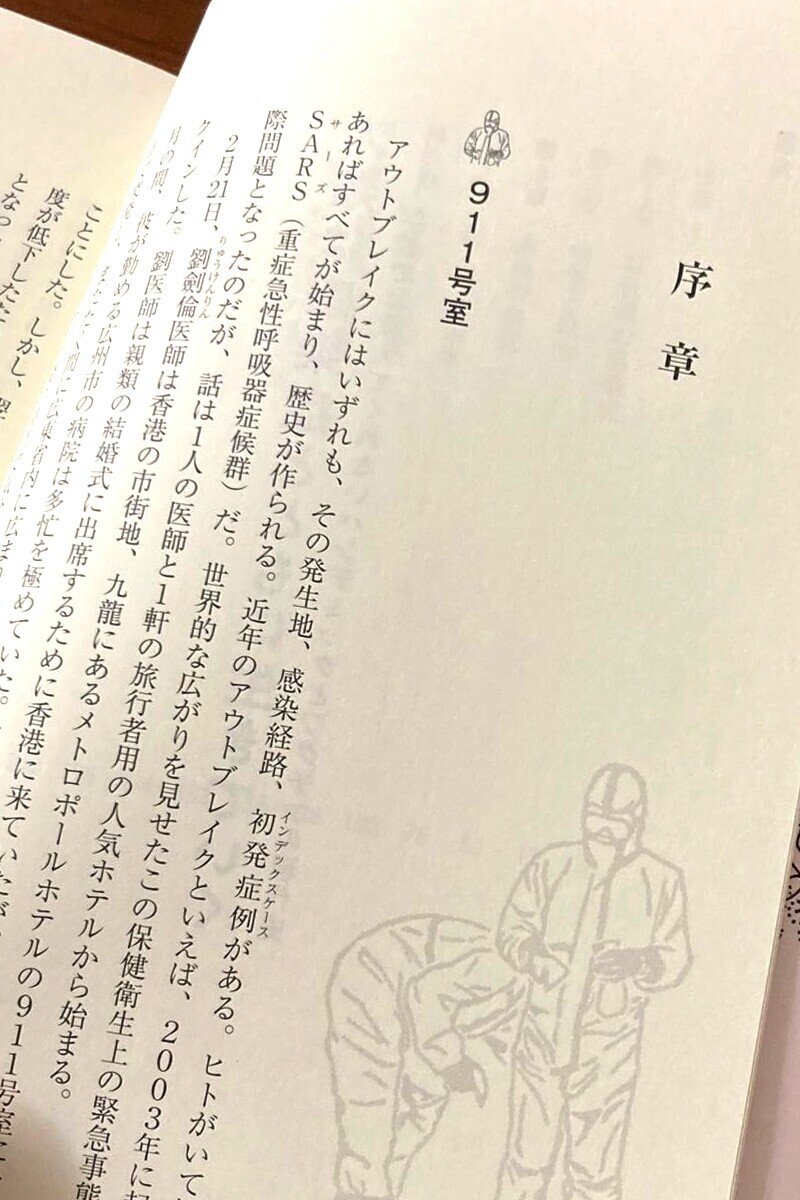 序章
911号室
アウトブレイクにはいずれも、その発生地、感染経路、初発症例がある。ヒトがいて
インデックスケース
あればすべてが始まり、歴史が作られる。近年のアウトブレイクといえば、2003年に
SARS（重症急性呼吸器症候群）だ。世界的な広がりを見せたこの保健衛生上の緊急事態
サーズ
際問題となったのだが、話は1人の医師と1軒の旅行者用の人気ホテルから始まる。
2月21日、劉劍倫医師は香港の市街地、九龍にあるメトロポールホテルの911号室に
りゅうけんりん
クインした。劉医師は親類の結婚式に出席するために香港に来ていたが
月の間、彼が勤める広州市の病院は多忙を極めていた。
間に広東省内に広まり
ことにした。しかし、翌
度が低下したた
となっ